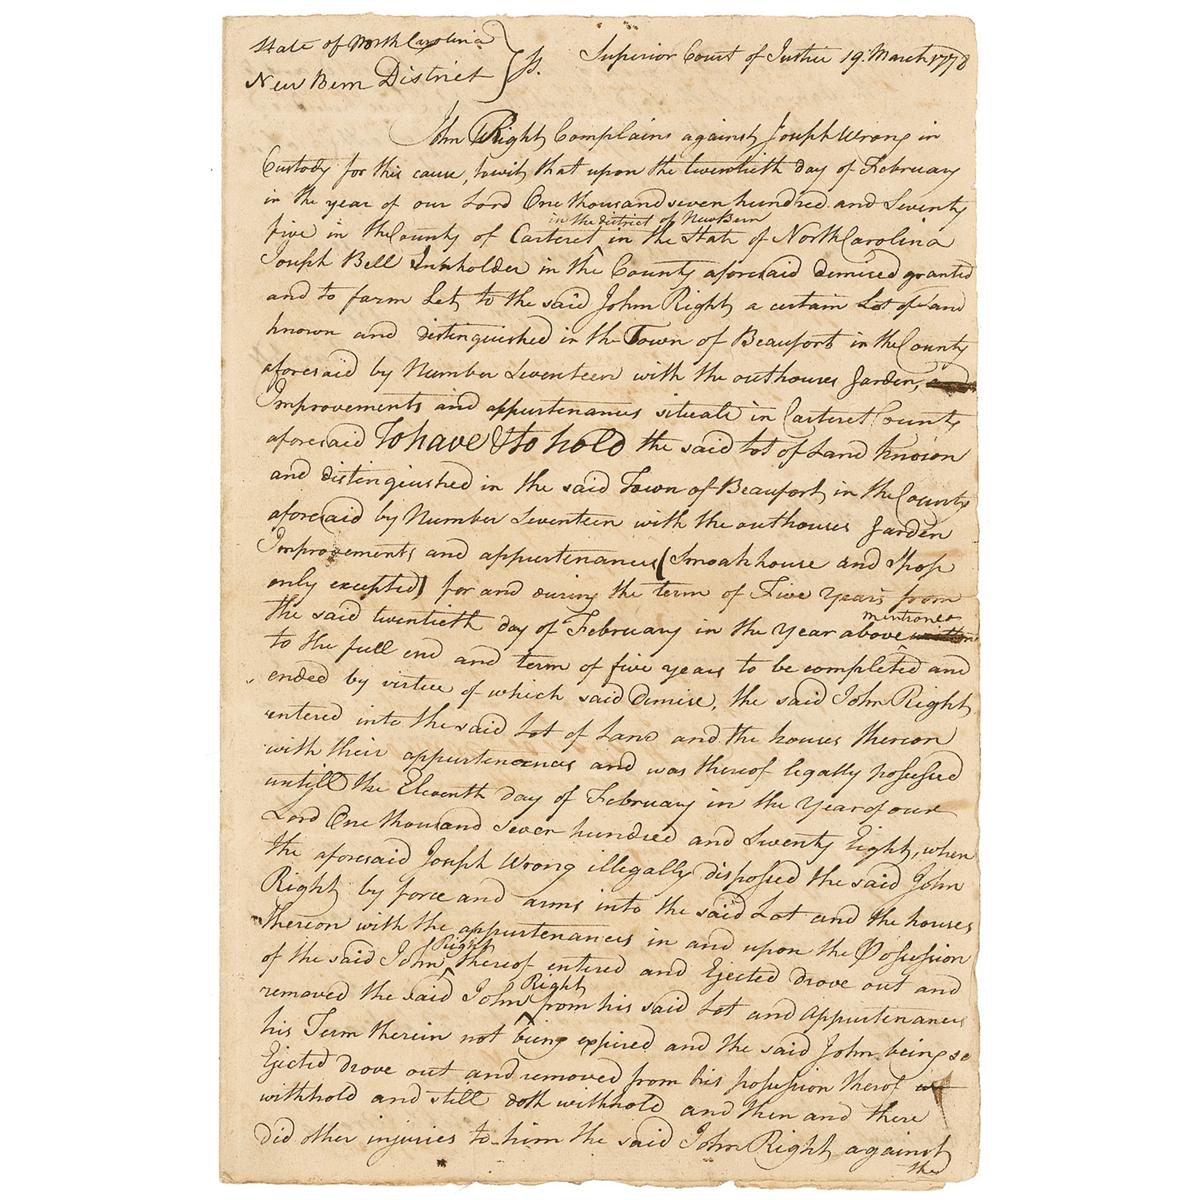 State of North Carolina
New Bern District } Ss. Superior Court of Justice 19. March 1778
John Right Complains against Joseph Wrong in
Custody for this cause, towit, that upon the twentieth day of February
in the year of our Lord One thousand seven hundred and Seventy
in the district of New Bern
five in the County of Carteret in the State of North Carolina
Joseph Bell Innholder in the County aforesaid demised granted
and to farm Let, to the said John Right a certain Lot of Land
known and distinguished in the Town of Beaufort in the County
aforesaid by Number Seventeen with the outhouses Garden,
Improvements and appurtenances situate in Carteret County
aforesaid To have & to hold the said Lot of Land known
and distinguished in the said Town of Beaufort in the County
aforesaid by Number Seventeen with the outhouses Garden
Improvements and appurtenances (Smoakhouse and Shop
only excepted) for and during the term of Five Years from
mentioned
the said twentieth day of February in the Year above
to the full end and term of five years to be completed and
ended by virtue of which said Demise, the said John Right
entered into the said Lot of Land and the houses thereon
with their appurtenances and was thereof legally possessed
untill the Eleventh day of February in the Year of our
Lord One thousand seven hundred and Seventy Eight, when
the aforesaid Joseph Wrong illegally disposed the said John
Right by force and arms into the said Lot and the houses
thereon with the appurtenances in and upon the Possession
Right
of the said John thereof entered and Ejected drove out and
Right
removed the said John from his said Lot and Appurtenances
his Term therein not being expired and the said John being so
Ejected drove out and removed from his possession therof
withhold and still doth withhold and then and there
did other injuries to him the said John Right against
the